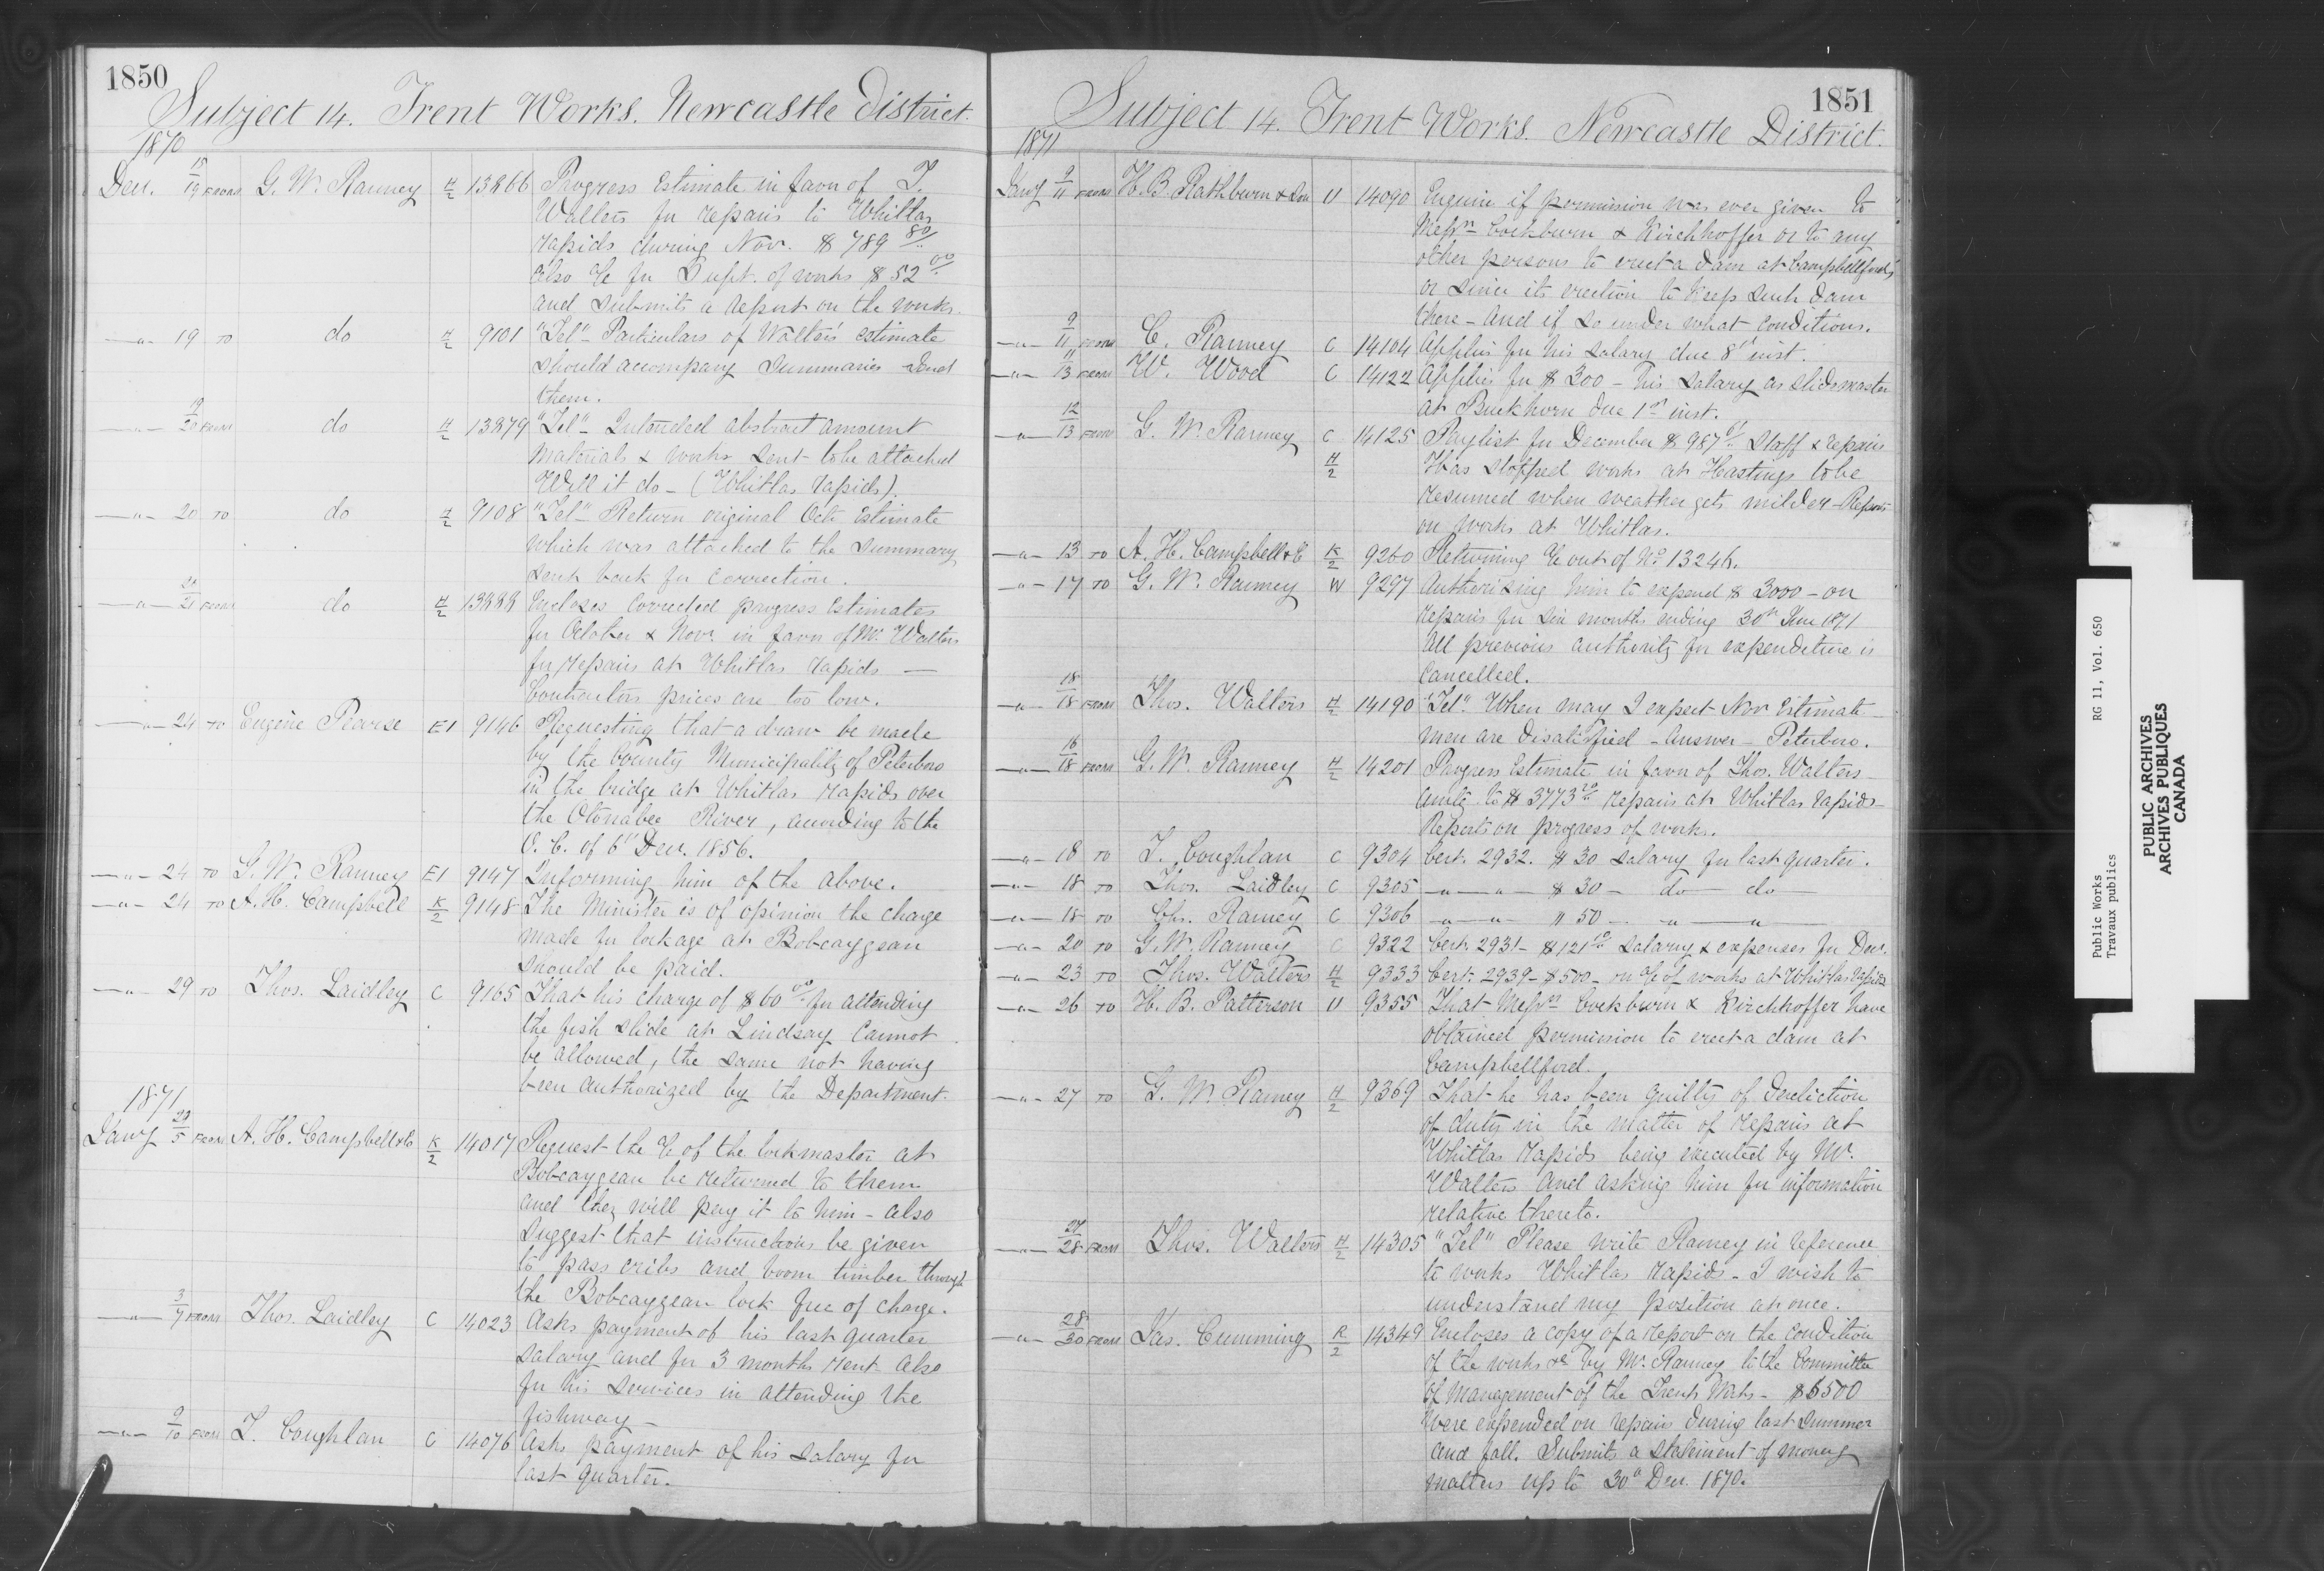 1850
Subject 14. Trent Works. Newcastle District.
1870
Dec. 15/19 FROM G. W. Ranney H/2 13866 Progress Estimate in favor of T.
Walters for repairs to Whitlas
rapids during Nov. $ 789 80/..
Also % for Supt. of works $ 52 00/..
and submits a report on the works.
—"— 19 TO do H/2 9101 "Tel" - Particulars of Walters' estimate
should accompany summaries send
them.
—"— 19/20 FROM do H/2 13879 "Tel" - Intended abstract amount
materials & works sent to be attached
Will it do - (Whitlas rapids).
—"— 20 TO do H/2 9108 "Tel" - Return original Oct. Estimate
which was attached to the summary
sent back for correction.
—"— 20/21 FROM do H/2 13888 Encloses corrected progress Estimates
for October & Nov. in favor of Mr. Walters
for repairs at Whitlas rapids —
Contractors prices are too low.
—"— 24 TO Eugene Pearse E1 9146 Requesting that a draw be made
by the County Municipality of Peterboro
in the bridge at Whitlas rapids over
the Otonabee River, according to the
O. C. of 6th Dec. 1856.
—"— 24 TO G. W. Ranney E1 9147 Informing him of the above.
—"— 24 TO A. H. Campbell K/2 9148 The Minister is of opinion the charge
made for lockage at Bobcaygean
should be paid.
—"— 29 TO Thos. Laidley C 9165 That his charge of $ 60 00/.. for attending
the fish slide at Lindsay cannot
be allowed, the same not having
been authorized by the Department.
1871
Jany 29/5 FROM A. H. Campbell & Co K/2 14017 Request the % of the lockmaster at
Bobcaygean be returned to them
and they will pay it to him - also
suggest that instructions be given
to pass cribs and boom timber through
the Bobcaygean lock free of charge.
—"— 3/7 FROM Thos. Laidley C 14023 Asks payment of his last quarter
salary and for 3 months rent also
for his services in attending the
fishway —
—"— 9/10 FROM T. Coughlan C 14076 Asks payment of his salary for
last quarter.
1851
Subject 14. Trent Works. Newcastle District.
1871
Jany 9/11 FROM H. B. Rathburn & Son U 14090 Enquire if permission was ever given to
Messrs Cockburn & Kirchhoffer or to any
other persons to erect a dam at Campbellford
or since its erection to keep such dam
there - and if so under what conditions.
—"— 9/11 FROM C. Ranney C 14104 Applies for his salary due 8th inst.
—"— 11/13 FROM W. Wood C 14122 Applies for $ 300 - his salary as slidemaster
at Buckhorn due 1st inst.
—"— 12/13 FROM G. W. Ranney C 14125 Paylist for December $ 987 61/.. staff & repairs
H/2 Has stopped works at Hastings to be
resumed when weather gets milder - Report
on works at Whitlas.
—"— 13 TO A. H. Campbell & Co K/2 9260 Returning % out of No 13246.
—"— 17 TO G. W. Ranney W 9297 Authorizing him to expend $ 3000 - on
repairs for six months ending 30th June 1871
All previous authority for expenditure is
cancelled.
—"— 18/18 FROM Thos. Walters H/2 14190 "Tel" When may I expect Nov Estimate
men are disatisfied - Answer - Peterboro.
—"— 16/18 FROM G. W. Ranney H/2 14201 Progress Estimate in favor of Thos. Walters
amtg. to $ 3773 20/.. repairs at Whitlas rapids -
Reports on progress of work.
—"— 18 TO T. Coughlan C 9304 Cert. 2932. $ 30 salary for last quarter.
—"— 18 TO Thos. Laidley C 9305 —"—"— $ 30 — do — do —
—"— 18 TO Chs. Ranney C 9306 —"—"— " 50 — "—"
—"— 20 TO G. W. Ranney C 9322 Cert. 2931 - $ 121 salary & expenses for Dec.
—"— 23 TO Thos. Walters H/2 9333 Cert. 2939 - $ 500 - on % of works at Whitlas rapids
—"— 26 TO H. B. Patterson U 9355 That Messrs Cockburn & Kirchhoffer have
obtained permission to erect a dam at
Campbellford.
—"— 27 TO G. W. Ranney H/2 9369 That he has been guilty of dereliction
of duty in the matter of repairs at
Whitlas rapids being executed by Mr.
Walters and asking him for information
relative thereto.
—"— 27/28 FROM Thos. Walters H/2 14305 "Tel" Please write Ranney in reference
to works Whitlas rapids - I wish to
understand my position at once.
—"— 28/30 FROM Jas. Cumming R/2 14349 Encloses a copy of a report on the condition
of the works &c by Mr. Ranney to the Committee
of management of the Trent Works - $ 6500
were expended on repairs during last summer
and fall. Submits a statement of money
matters up to 30th Dec. 1870.
Public Works RG 11, Vol. 650
Travaux publics
PUBLIC ARCHIVES
ARCHIVES PUBLIQUES
CANADA